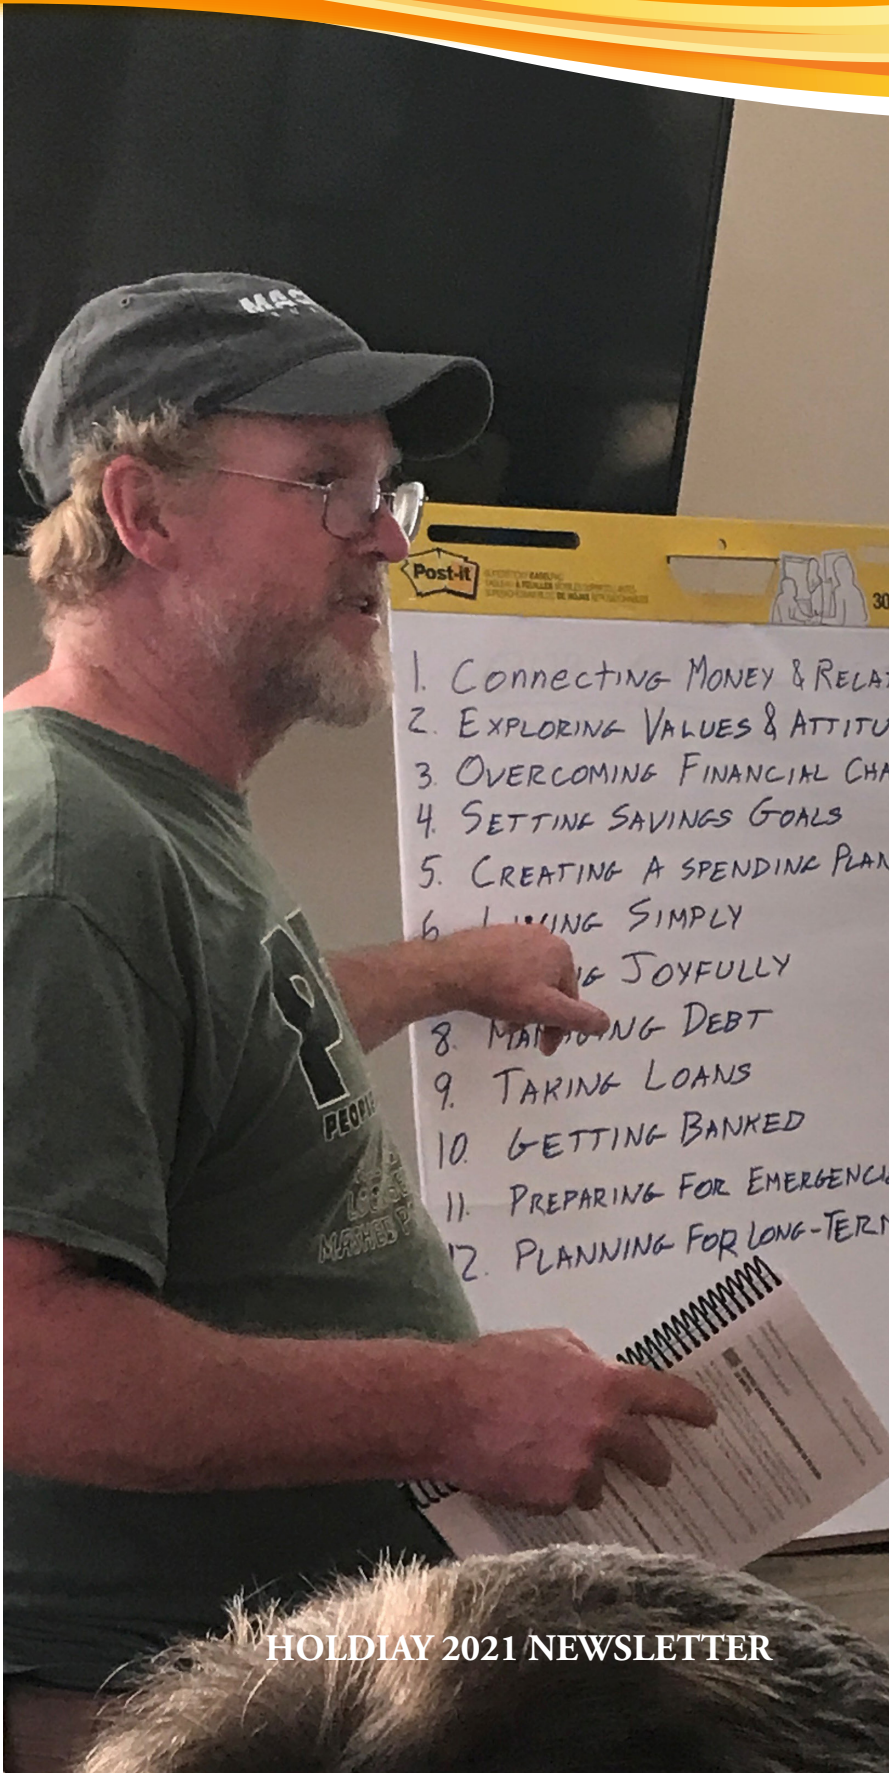 MAG
Post-it
30
1. Connecting MONEY & RELAT
2. EXPLORING VALUES & ATTITU
3. OVERCOMING FINANCIAL CHA
4. SETTING SAVINGS GOALS
5. CREATING A SPENDING PLAN
6. ING SIMPLY
G JOYFULLY
8. MANAGING DEBT
9. TAKING LOANS
10. GETTING BANKED
11. PREPARING FOR EMERGENCI
12. PLANNING FOR LONG-TERM
PEOPLE
MASHED P
HOLDIAY 2021 NEWSLETTER